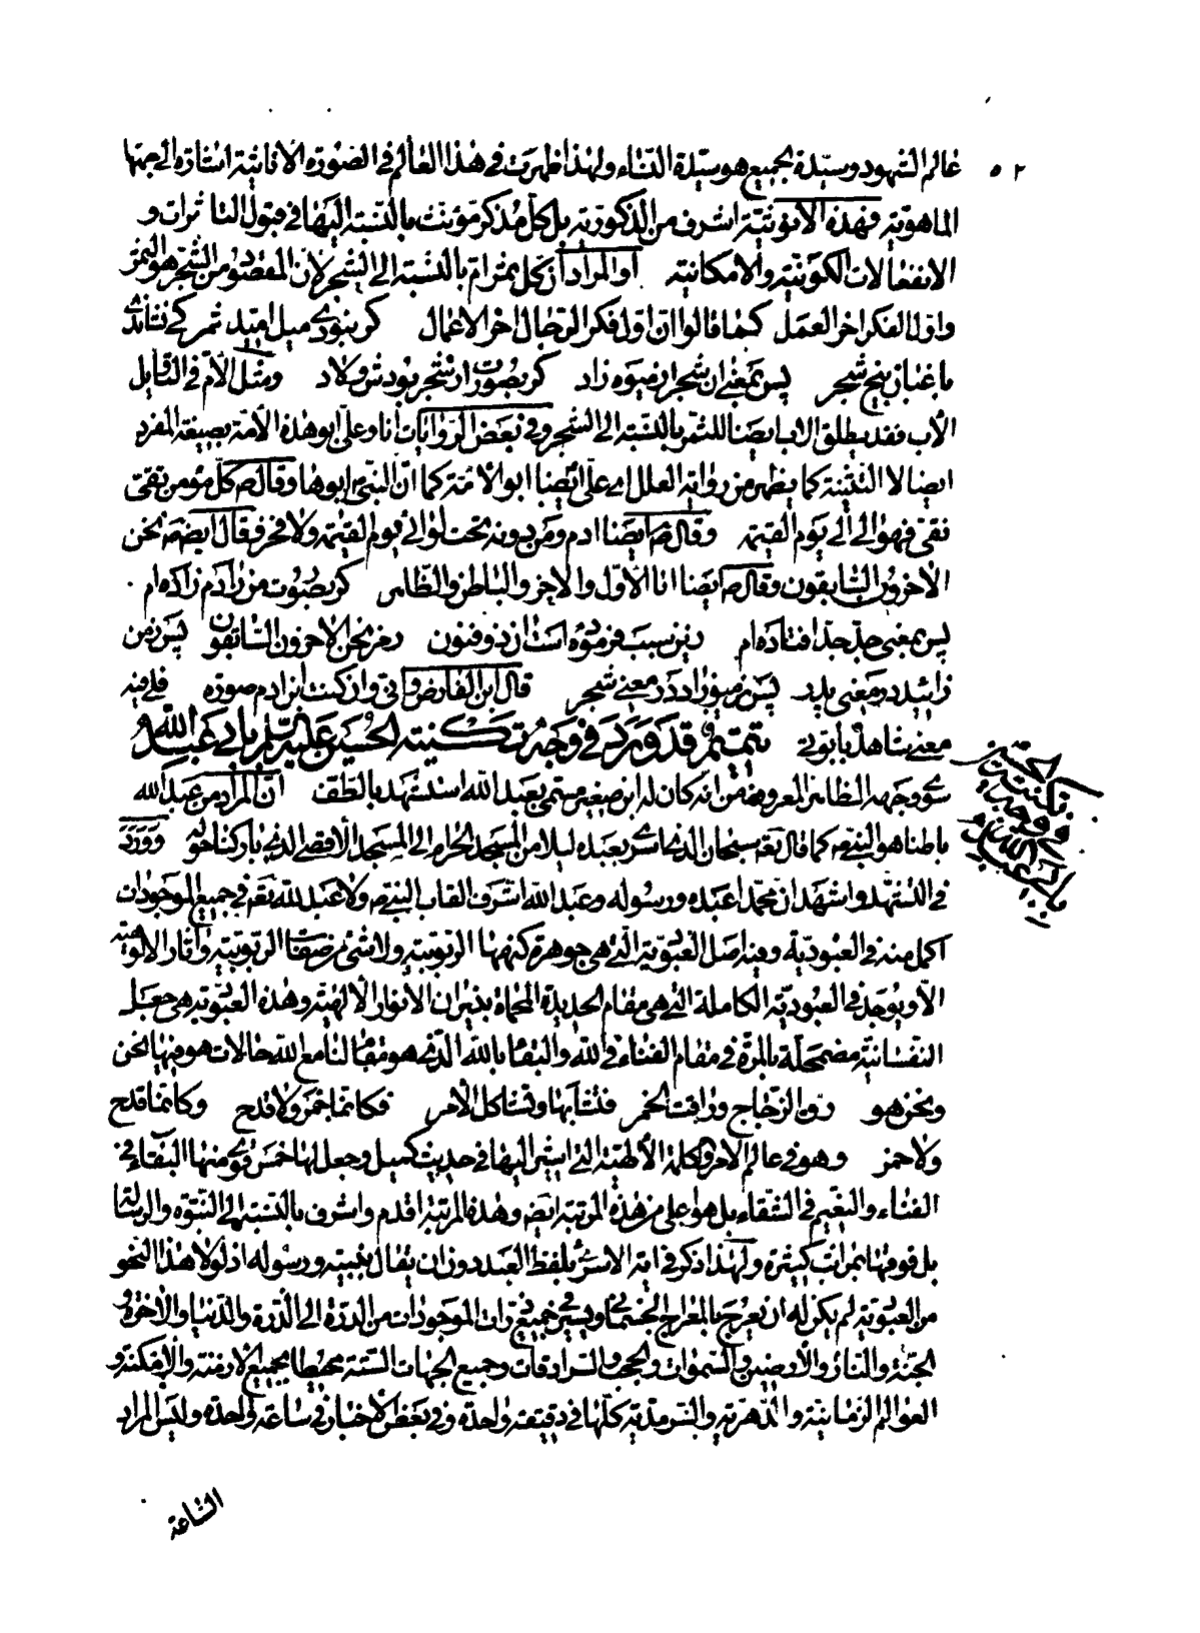 ٥٢
عالم الشهود وسيدة لجميع هو سيدة النساء ولهذا ظهرت في هذا العالم في الصورة الاناثية اشارة الى جهتها
الماهوية فهذه الانوثية اشرف من الذكورية بل كل مذكر مؤنث بالنسبة اليها في قبول التاثرات و
الانفعالات الكونية والامكانية او المراد ان كل ثمر ام بالنسبة الى الشجر لان المقصود من الشجر هو الثمر
واول الفكر اخر العمل كما قالوا ان اول فكر الرجال اخر الاعمال كر نبودى ميل اميد ثمر كى نشاندى
باغبان بيخ شجر پس بمعنى ان شجر از ميوه زاد كر بصورت از شجر بودش ولاد ومثل الام في التاويل
الاب فقد يطلق الاب ايضا للثمر بالنسبة الى الشجر وفي بعض الروايات انا وعلي ابو هذه الامة بصيغة المفرد
ايضا لا التثنية كما يظهر من رواية العلل اى علي ايضا ابو الامة كما ان النبي ص ابوها وقال ص كل مؤمن تقي
نقي فهو الي الى يوم القيمة وقال ص ايضا ادم ومن دونه تحت لوائي يوم القيمة ولا فخر وقال ايضا ص نحن
الاخرون السابقون وقال ص ايضا انا الاول والاخر والباطن والظاهر كر بصورت من ز ادم زاده ام
پس بمعنى جد جد افتاده ام زين سبب فرموده است ان ذو فنون رمز نحن الاخرون السابقون پس ز من
زائيد در معنى پدر پس ز ميوه زاد در معنى شجر قال ابن الفارض واني وان كنت ابن ادم صورة فلي فيه
معنى شاهد بابوتي تتميم قد ورد في وجه كنيته الحسين عليه السلام بابي عبد الله
سوى وجهه الظاهر المعروف من انه كان له ابن صغير مسمى بعبد الله استشهد بالطف ان المراد من عبد الله
باطنا هو النبي ص كما قال تعه سبحان الذي اسرى بعبده ليلا من المسجد الحرام الى المسجد الاقصى الذي باركنا حوله وورد
في التشهد واشهد ان محمدا عبده ورسوله وعبد الله اشرف القاب النبي ص ولا عبد لله تعه في جميع الموجودات
اكمل منه في العبودية وفيه اصل العبودية التي هي جوهرة كنهها الربوبية ولا شئ من صفات الربوبية واثار الالوهية
الا ويوجد في العبودية الكاملة التي هي مقام الحديدة المحماة بنيران الانوار الالهية وهذه العبودية هي جعل
النفسانية مضمحلة بالمرة في مقام الفناء في الله والبقاء بالله الذي هو مقام لنا مع الله حالات هو فيها نحن
ونحن هو رق الزجاج وراقت الخمر فتشابها وتشاكل الامر فكانما خمر ولا قدح وكانما قدح
ولا خمر وهو في عالم الامر والكلمة الالهية التي اشير اليها في حديث كميل وجعل لها خمس قوى منها البقاء في
الفناء والنعيم في الشقاء بل هو اعلى من هذه المرتبة ايضا وهذه المرتبة اقدم واشرف بالنسبة الى النبوة والرسالة
بل فوقها بمراتب كثيرة ولهذا ذكر في اية الاسرى بلفظ العبد دون ان يقال بنبيه ورسوله اذ لولا هذا النحو
من العبودية لم يكن له ان يعرج بالمعراج الجسماني ويسير في جميع ذرات الموجودات من الدرة الى الذرة والدنيا والاخرة و
الجنة والنار والارضين والسموات والحجب والسرادقات وجميع الجهات الستة محيطا بجميع الازمنة والامكنة و
العوالم الزمانية والدهرية والسرمدية كلها في دقيقة واحدة وفي بعض الاخبار في ساعة واحدة وليس المراد
الساعة